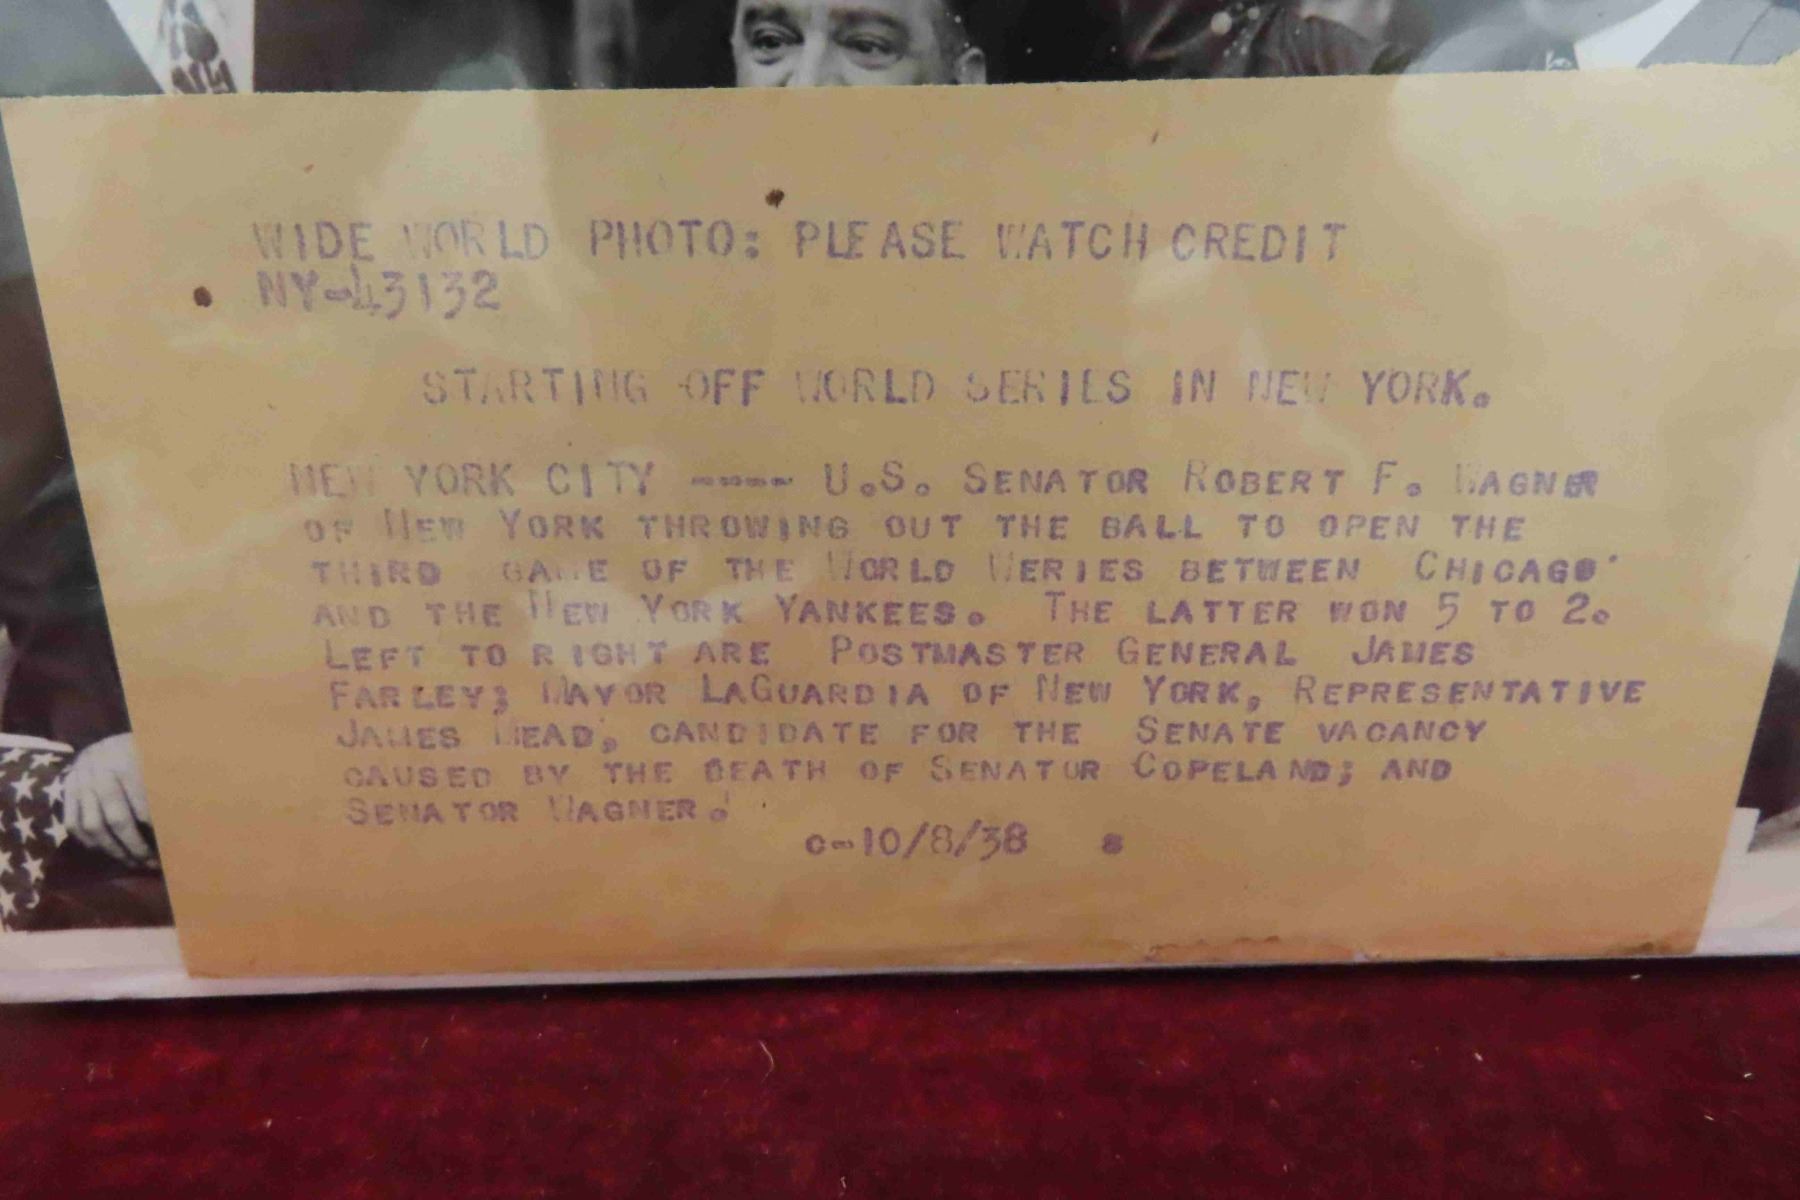 WIDE WORLD PHOTO: PLEASE WATCH CREDIT
NY-43132
STARTING OFF WORLD SERIES IN NEW YORK.
NEW YORK CITY ---- U.S. SENATOR ROBERT F. WAGNER
OF NEW YORK THROWING OUT THE BALL TO OPEN THE
THIRD GAME OF THE WORLD WERIES BETWEEN CHICAGO
AND THE NEW YORK YANKEES. THE LATTER WON 5 TO 2.
LEFT TO RIGHT ARE POSTMASTER GENERAL JAMES
FARLEY; MAYOR LAGUARDIA OF NEW YORK, REPRESENTATIVE
JAMES MEAD, CANDIDATE FOR THE SENATE VACANCY
CAUSED BY THE DEATH OF SENATOR COPELAND; AND
SENATOR WAGNER.
c-10/8/38 s